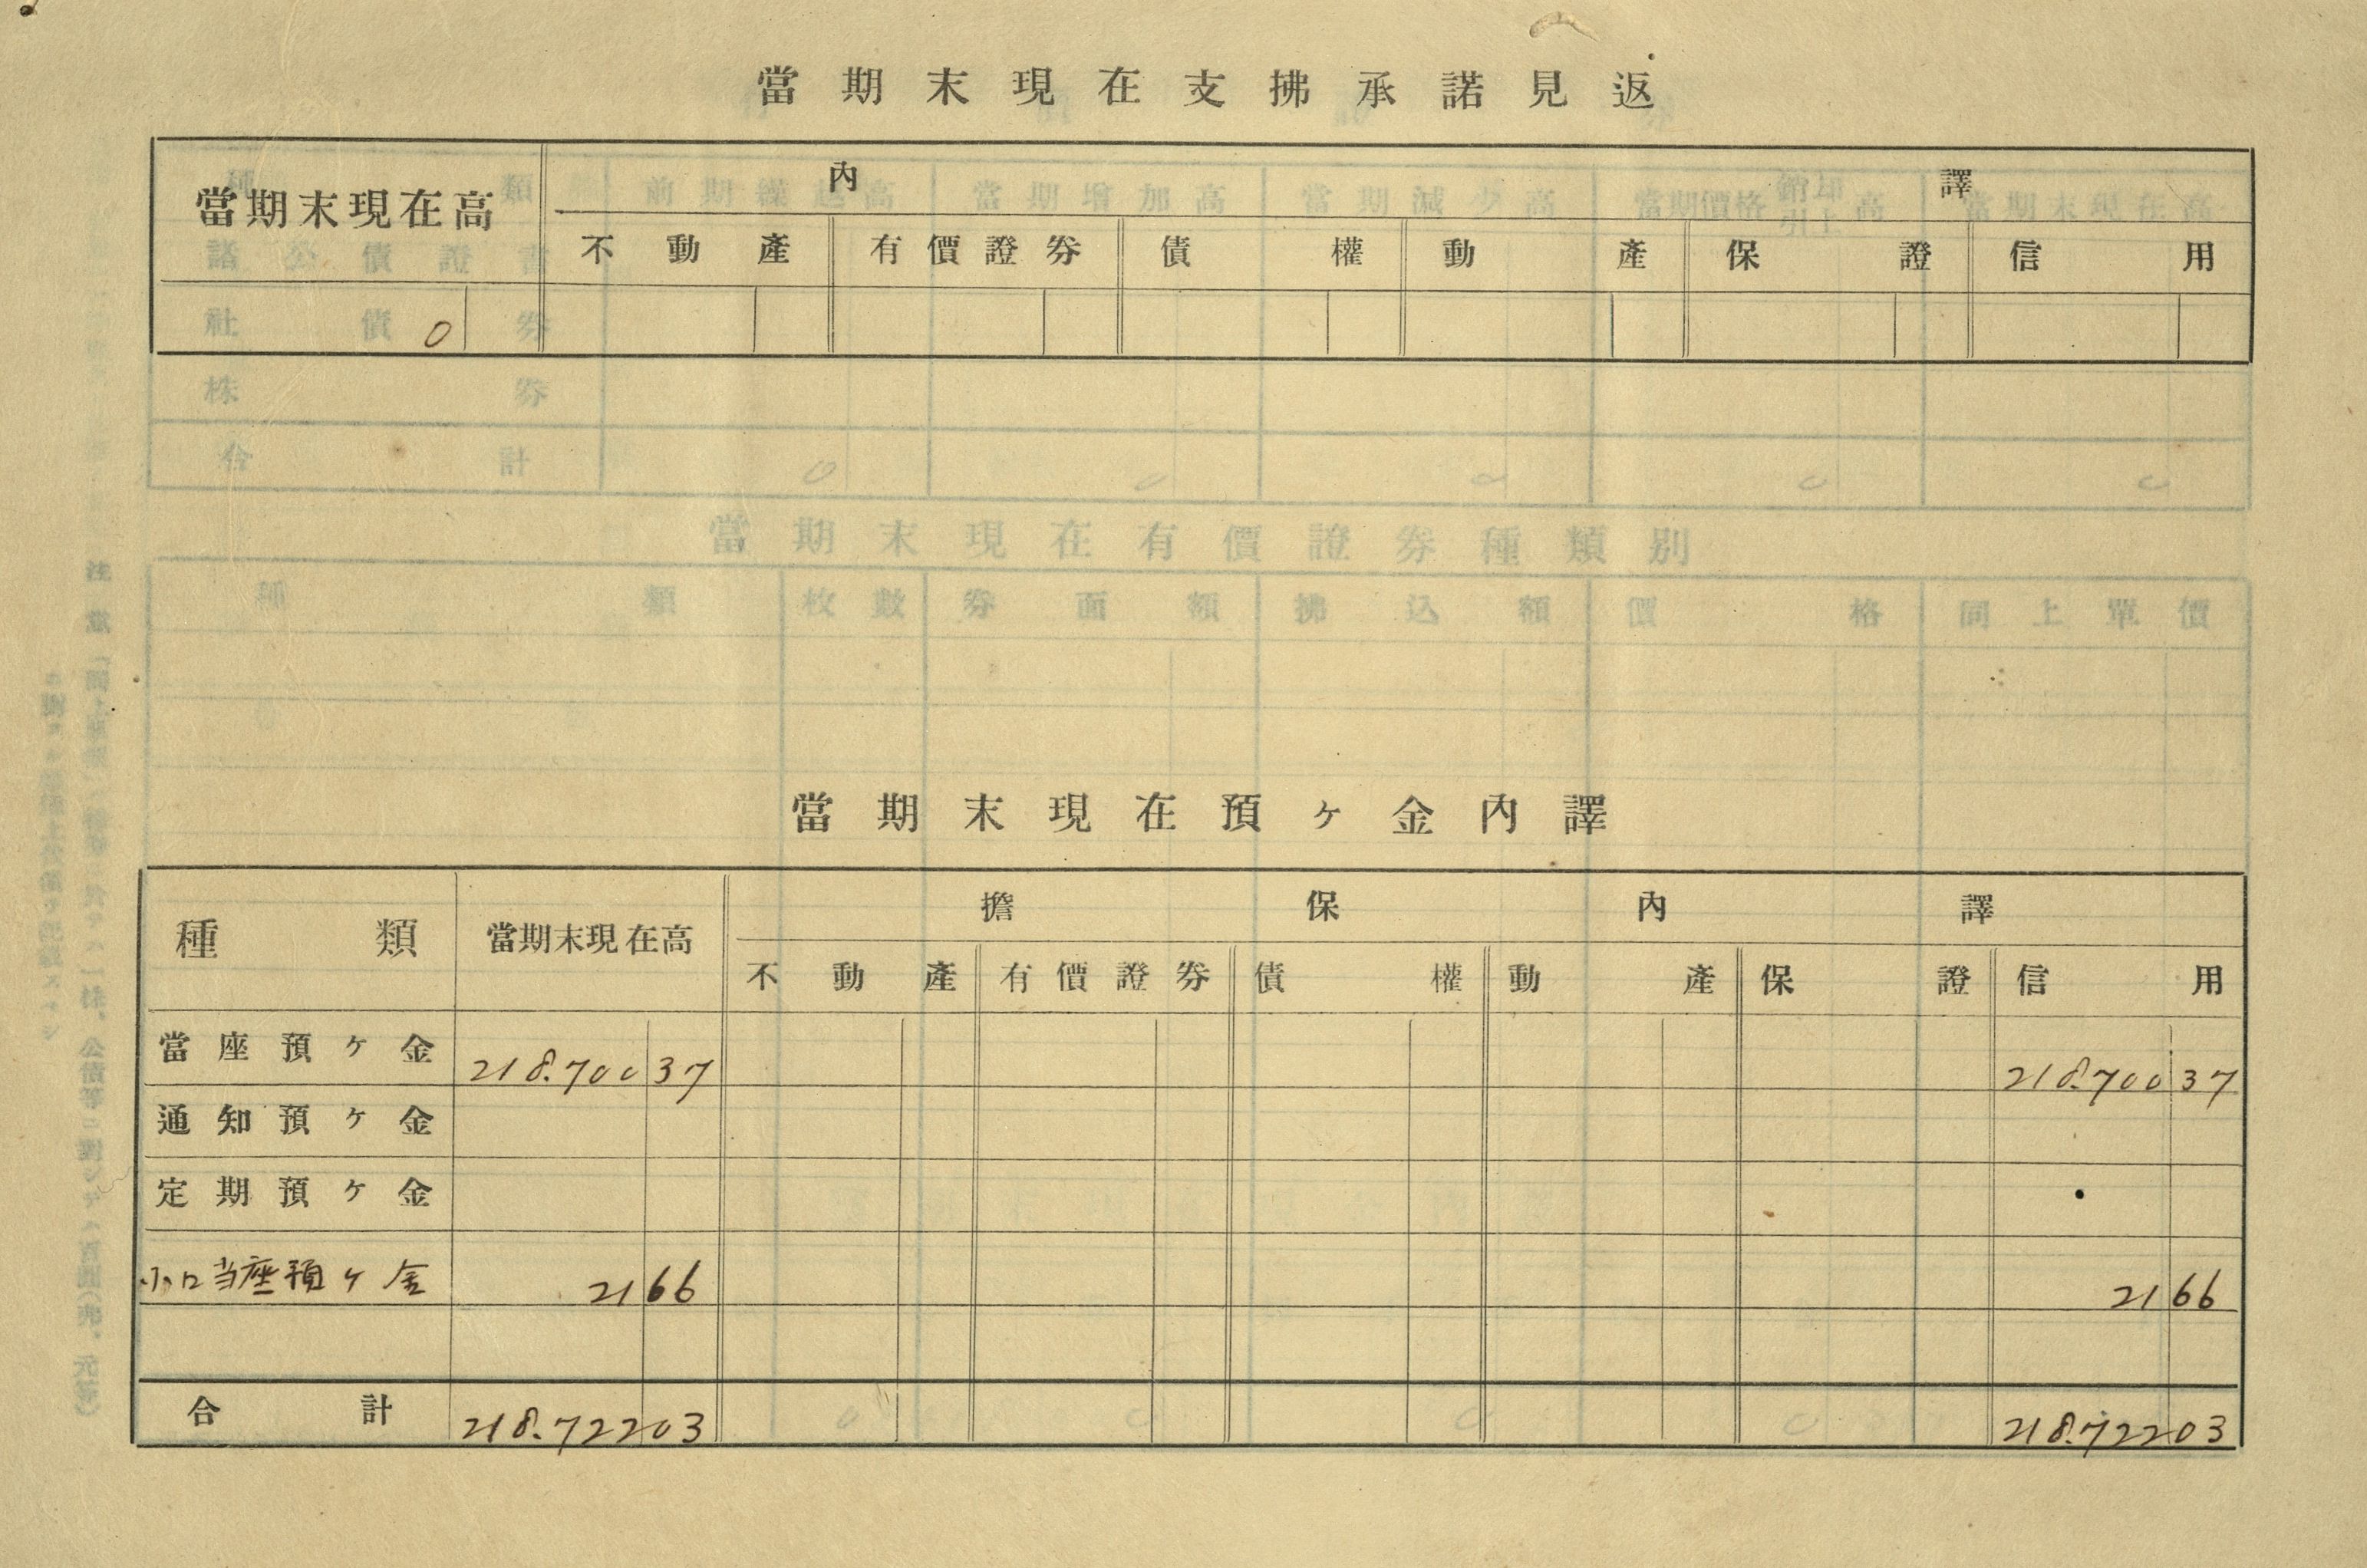 當期末現在支拂承諾見返
當期末現在高 內譯
不動產 有價證券 債權 動產 保證 信用
0
當期末現在預ヶ金內譯
種類 當期末現在高 擔保內譯
不動產 有價證券 債權 動產 保證 信用
當座預ヶ金 218.700 37 218.700 37
通知預ヶ金
定期預ヶ金
小口当座預ヶ金 21 66 21 66
合計 218.722 03 218.722 03